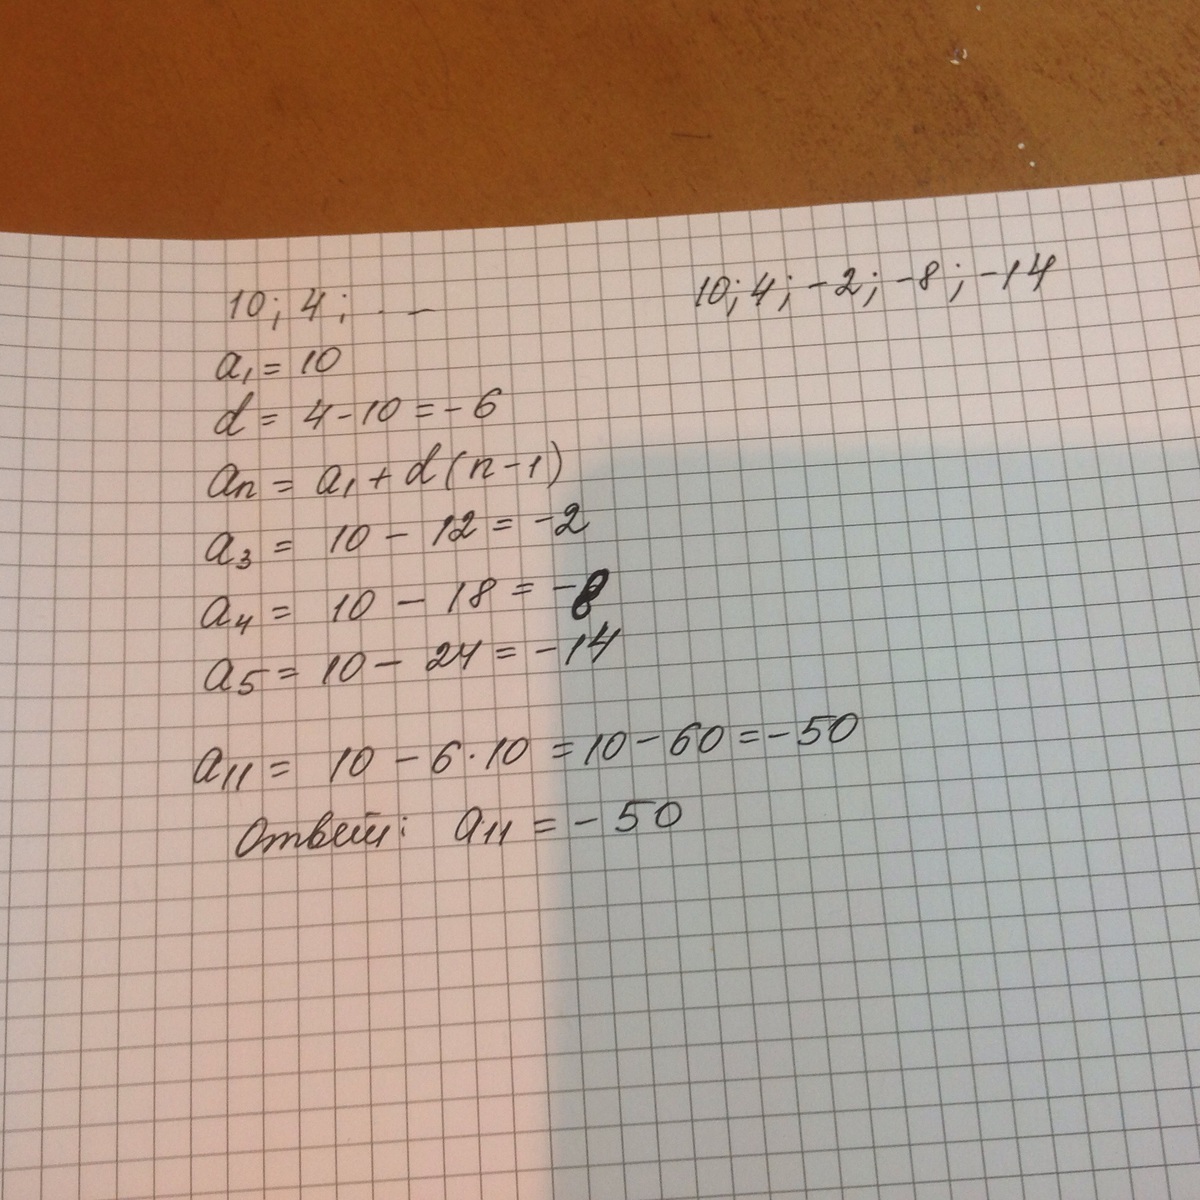 10; 4; . . —
10; 4; -2; -8; -14
a₁ = 10
d = 4 - 10 = - 6
aₙ = a₁ + d (n - 1)
a₃ = 10 - 12 = -2
a₄ = 10 - 18 = -8
a₅ = 10 - 24 = -14
a₁₁ = 10 - 6 · 10 = 10 - 60 = -50
Ответ: a₁₁ = - 50